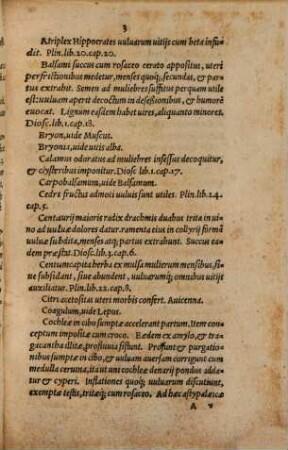 3
Atriplex Hippocrates uuluarum uitijs cum beta infu-
dit. Plin.lib.20.cap.20.
Balsami succus cum rosaceo cerato appositus, uteri
perfrictionibus medetur, menses quoq; secundas, & par
tus extrahit. Semen ad muliebres suffitus perquam utile
est: uuluam aperit decoctum in desessionibus, & humorē
euocat. Lignum easdem habet uires, aliquanto minores.
Diosc.lib.1.cap.18.
Bryon, uide Muscus.
Bryonia, uide uitis alba.
Calamus odoratus ad muliebres insessus decoquitur,
& clysteribus imponitur. Diosc lib.1.cap.17.
Carpobalsamum, uide Balsamum.
Cedri fructus admoti uuluis sunt utiles. Plin.lib.24.
cap.5.
Centaurij maioris radix drachmis duabus trita in uino
ad uuluæ dolores datur. ramenta eius in collyrij formā
uuluæ subdita, menses atq; partus extrahunt. Succus ea
dem præstat. Diosc.lib.3.cap.6.
Centumcapita herba ex mulsa mulierum mensibus, si-
ue subsidant, siue abundent, uuluarumq; omnibus uitijs
auxiliatur. Plin.lib.22.cap.8.
Citri acetositas uteri morbis confert. Auicenna.
Coagulum, uide Lepus.
Cochleæ in cibo sumptæ accelerant partum. Item con
ceptum impositæ cum croco. Eædem ex amylo, & tra-
gacantha illitæ, profluuia sistunt. Prosunt & purgatio-
nibus sumptæ in cibo, & uuluam auersam corrigunt cum
medulla ceruina, ita ut uni cochleæ denarij pondus adda-
tur & cyperi. Inflationes quoq; uuluarum discutiunt,
exemptæ testis, tritæq; cum rosaceo. Ad hæc astypalæicæ
A v